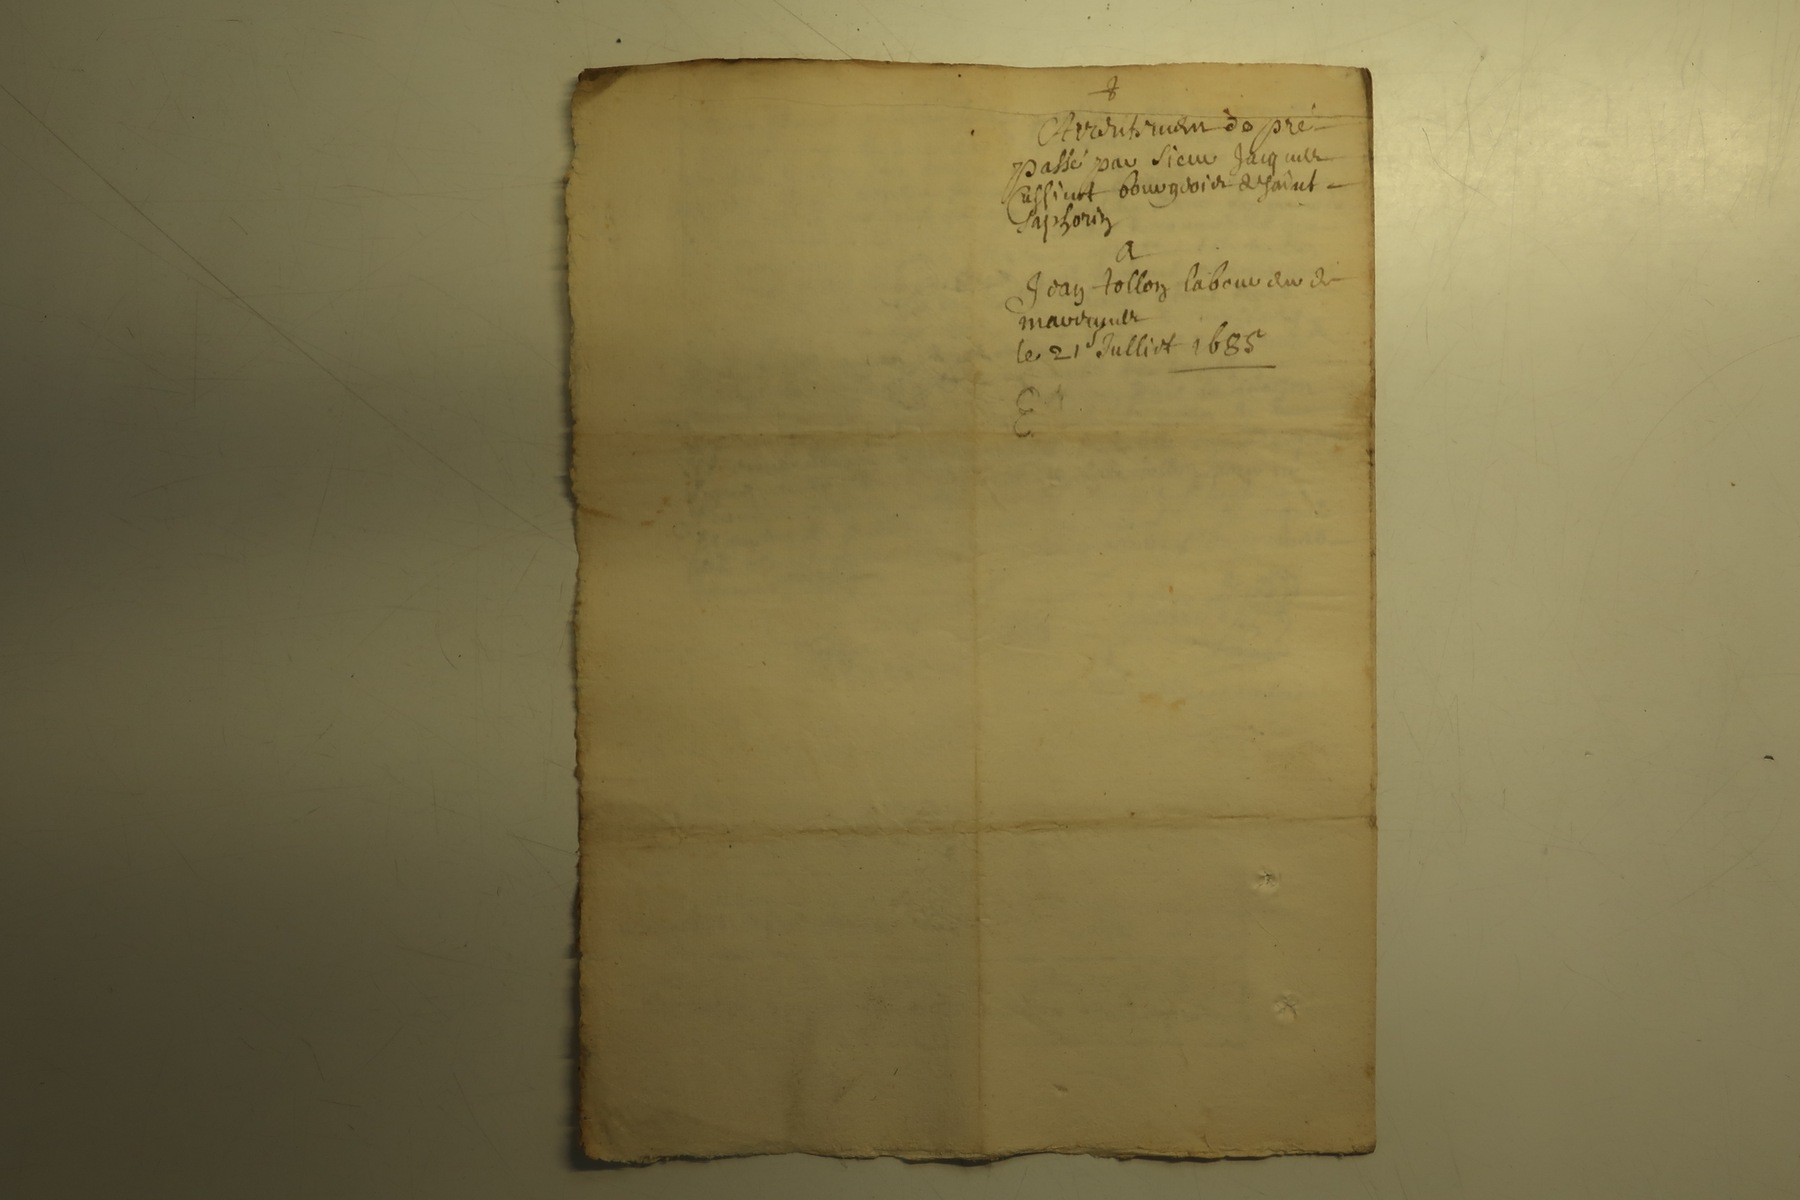 Arrentement de pré
passé par sieur Jacques
Cussinet bourgeois de saint
saphorin
A
Jean tollon laboureur de
marennes
le 21 Julliet 1685